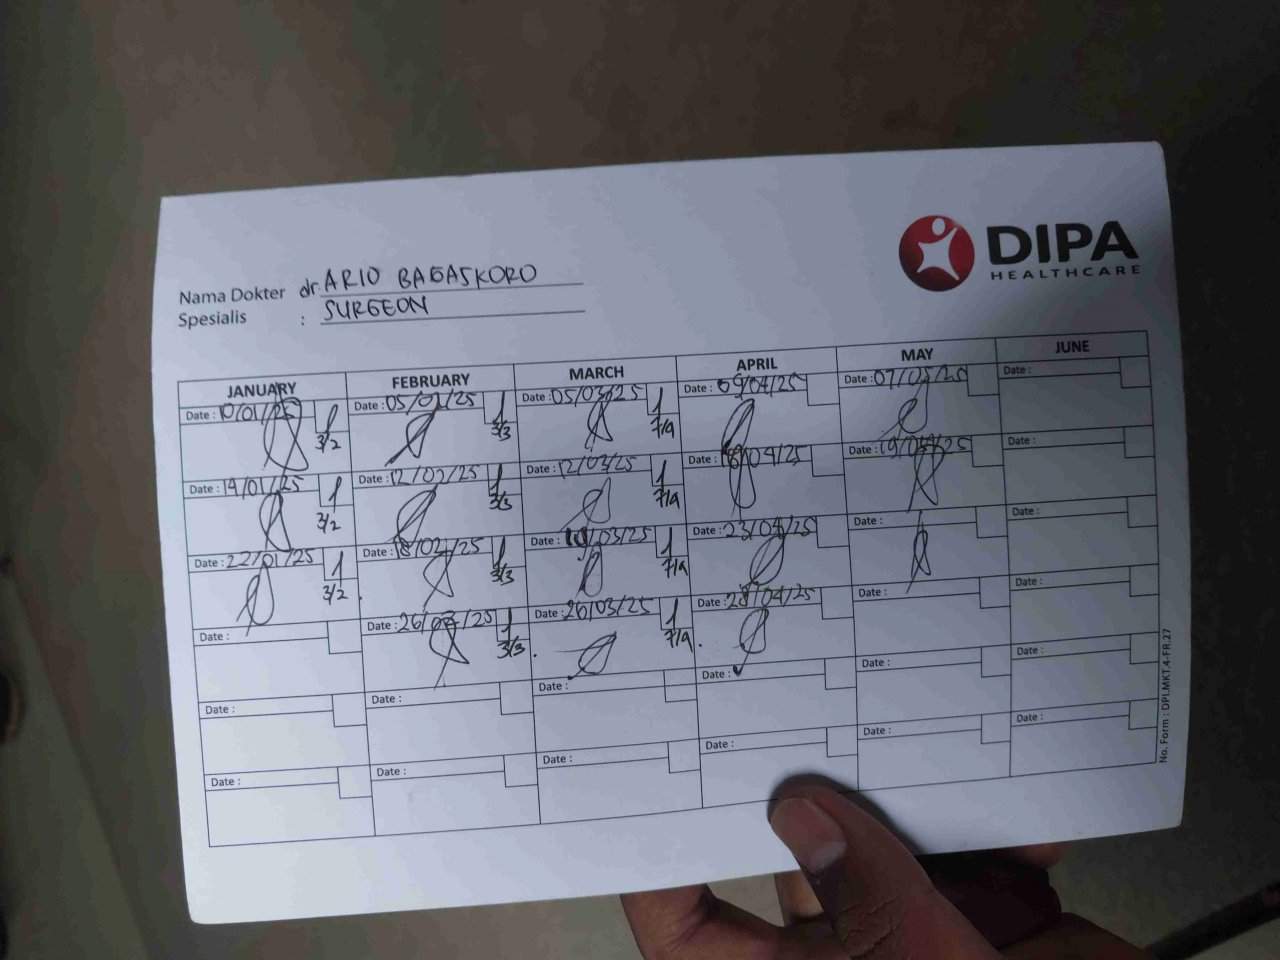 DIPA
HEALTHCARE
Nama Dokter dr. ARIO BAGASKORO
Spesialis : SURGEON
JANUARY FEBRUARY MARCH APRIL MAY JUNE
Date : 10/01/25 1 Date : 05/02/25 1 Date : 05/03/25 1 Date : 09/04/25 Date : 07/05/25 Date :
3/2 3/3 7/9
Date : 14/01/25 1 Date : 12/02/25 1 Date : 12/03/25 1 Date : 18/04/25 Date : 19/05/25 Date :
3/2 3/3 7/9
Date : 22/01/25 1 Date : 18/02/25 1 Date : /03/25 1 Date : 23/04/25 Date : Date :
3/2 3/3 7/9
Date : Date : 26/02/25 1 Date : 26/03/25 1 Date : 28/04/25 Date : Date :
3/3 7/9
Date : Date : Date : Date : Date : Date :
Date : Date : Date : Date : Date : Date :
No. Form : DPI.MKT.4-FR.27